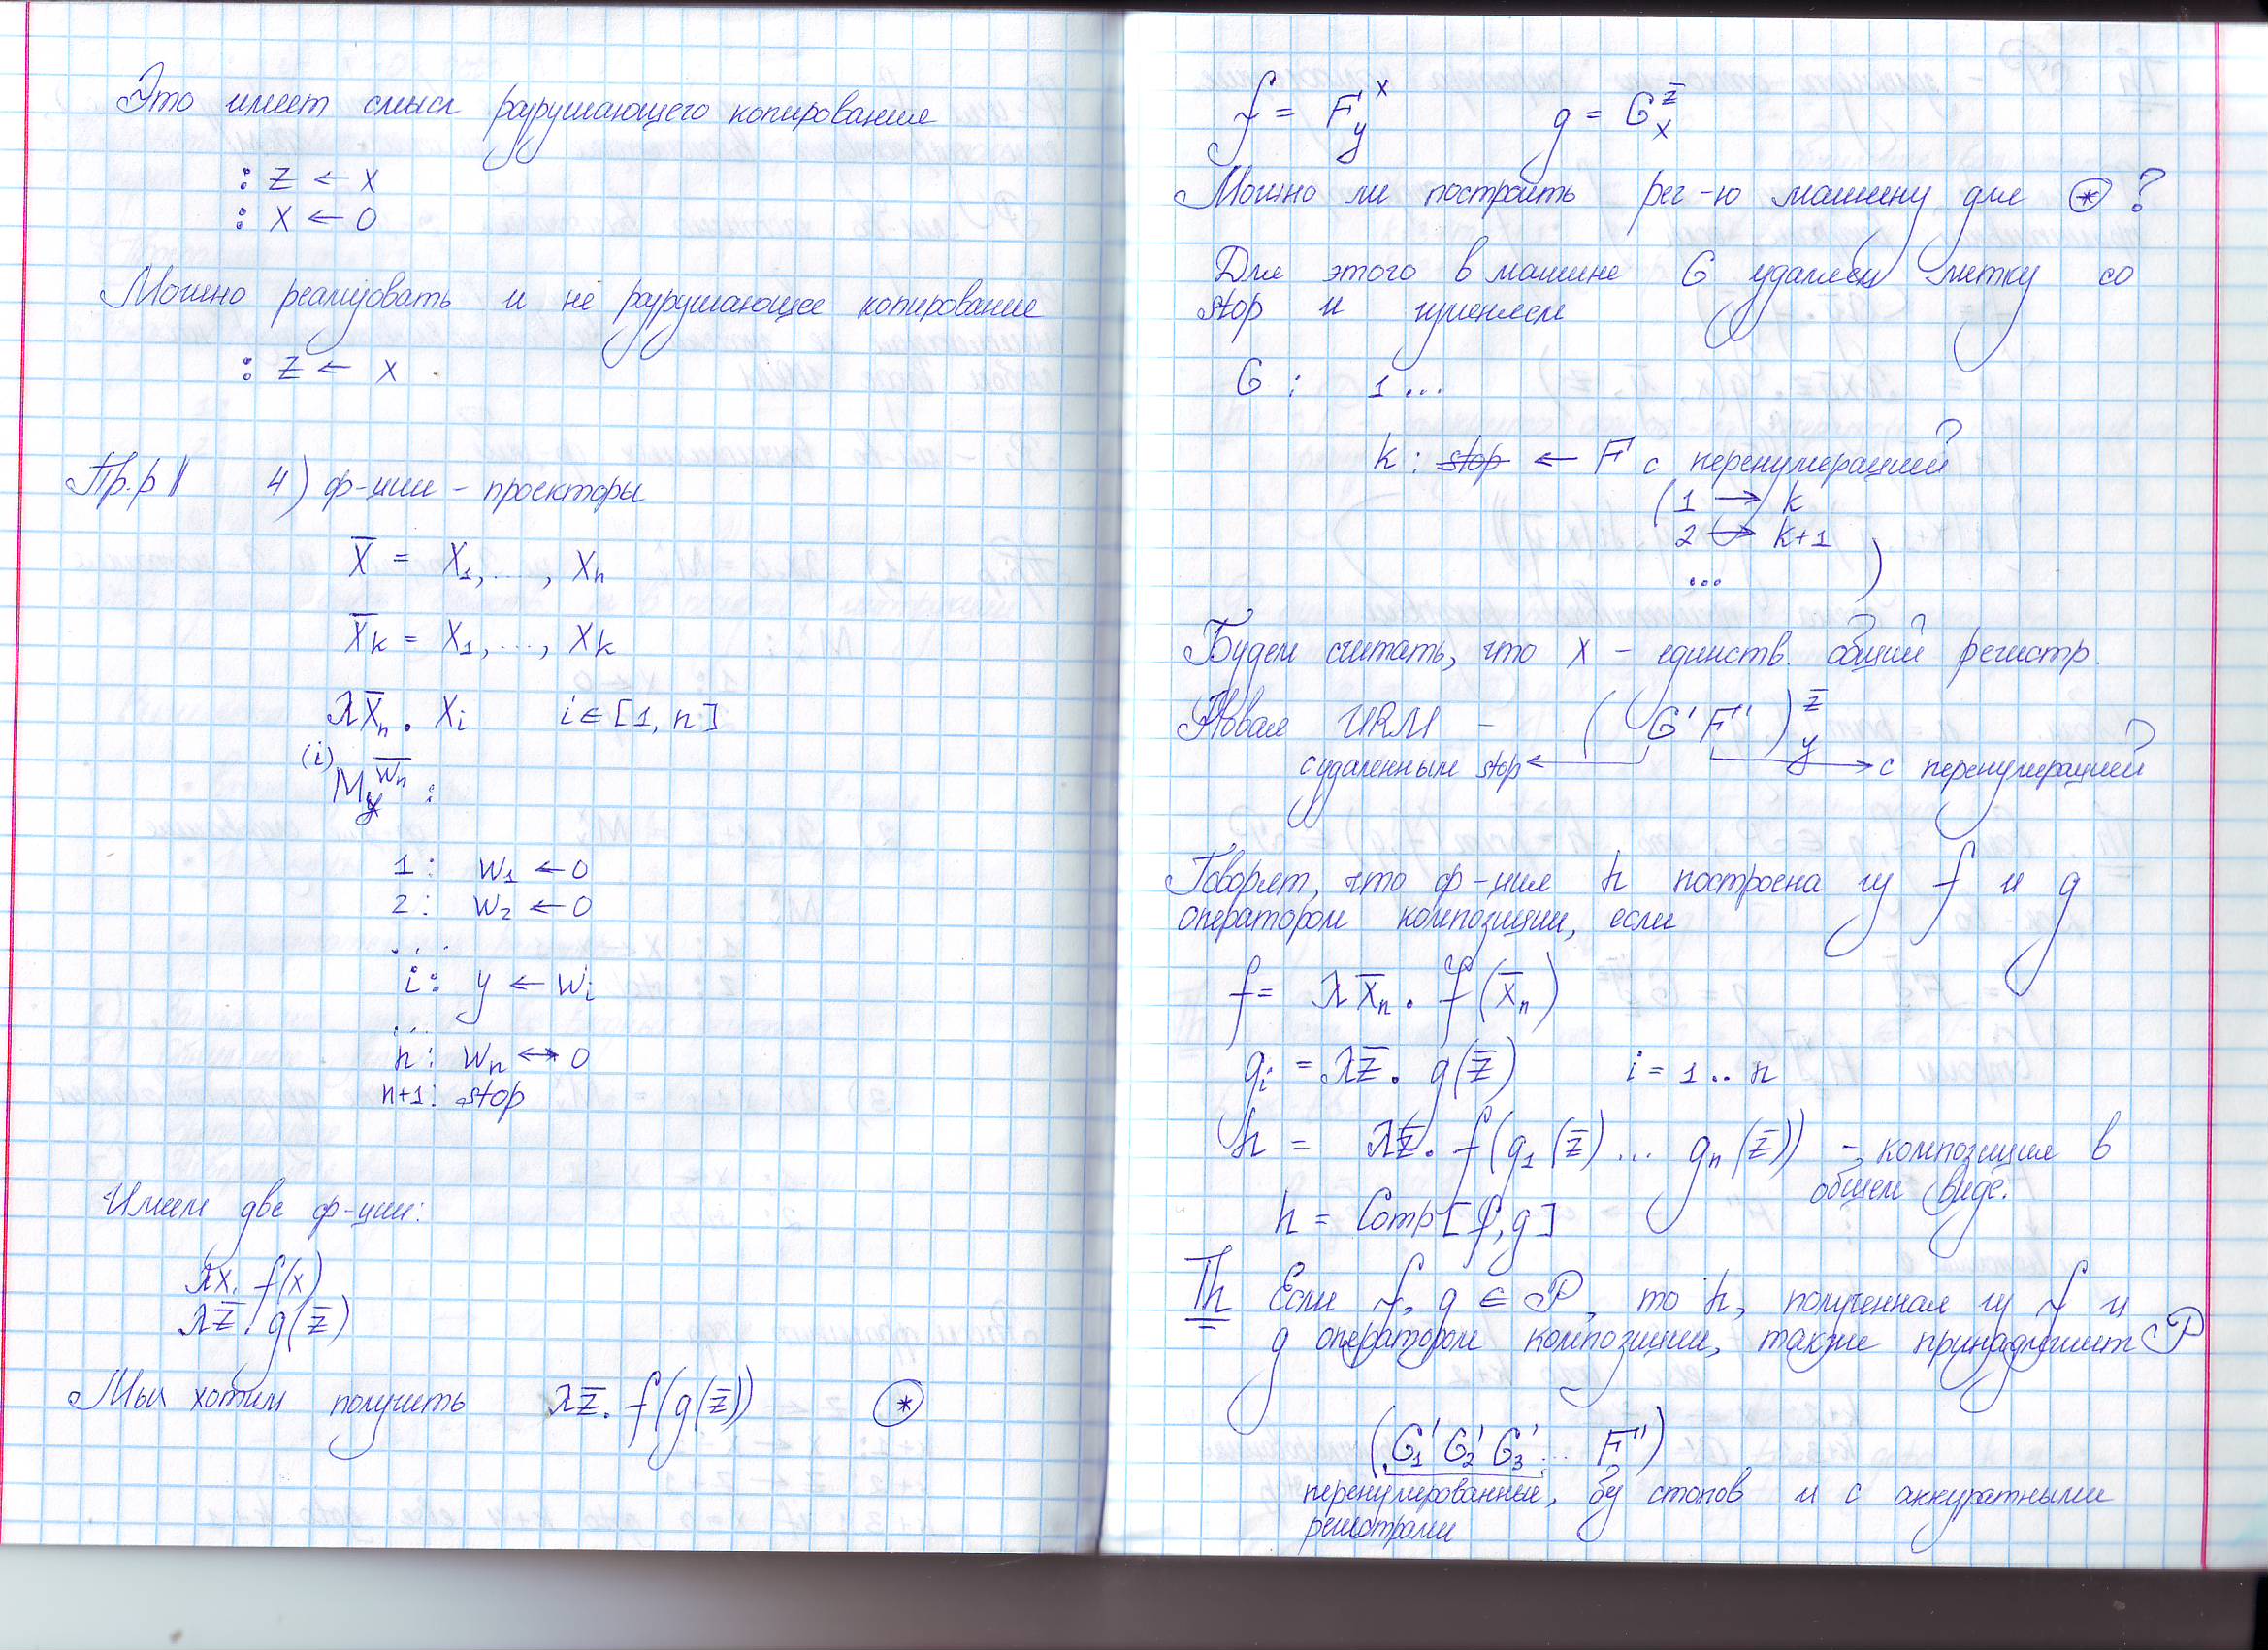 Это имеет смысл разрушающего копирования
: z ← x
: x ← 0
Можно реализовать и не разрушающее копирование
: z ← x
Пр.р || 4) ф-ции – проекторы
x̅ = x₁, ..., xₙ
x̅k = x₁, ..., xk
λx̅ₙ. xᵢ i ∈ [1, n]
(i)
M w̅ₙ y :
1: w₁ ← 0
2: w₂ ← 0
...
i: y ← wᵢ
...
n: wₙ ← 0
n+1: stop
Имеем две ф-ции:
λx. f(x)
λz̅. g(z̅)
Мы хотим получить λz̅. f(g(z̅)) (*)
f = F x y g = G z̅ x
Можно ли построить рег-ю машину для (*) ?
Для этого в машине G удаляем метку со
stop и изменяем
G : 1 ...
k : stop ← F с перенумерацией
(1 → k
2 → k+1
... )
Будем считать, что x – единств. общий регистр.
Новая URM – (G' F'') z̅ y
с удаленным stop ← → с перенумерацией
Говорят, что ф-ция h построена из f и g
оператором композиции, если
f = λx̅ₙ. f(x̅ₙ)
gᵢ = λz̅. g(z̅) i = 1..n
h = λz̅. f(g₁(z̅) ... gₙ(z̅)) – композиция в
общем виде.
h = Comp[f,g]
Th Если f, g ∈ 𝒫, то h, полученная из f и
g оператором композиции, также принадлежит 𝒫
(G₁' G₂' G₃' ... F'')
перенумерованные, без стопов и с аккуратными
регистрами